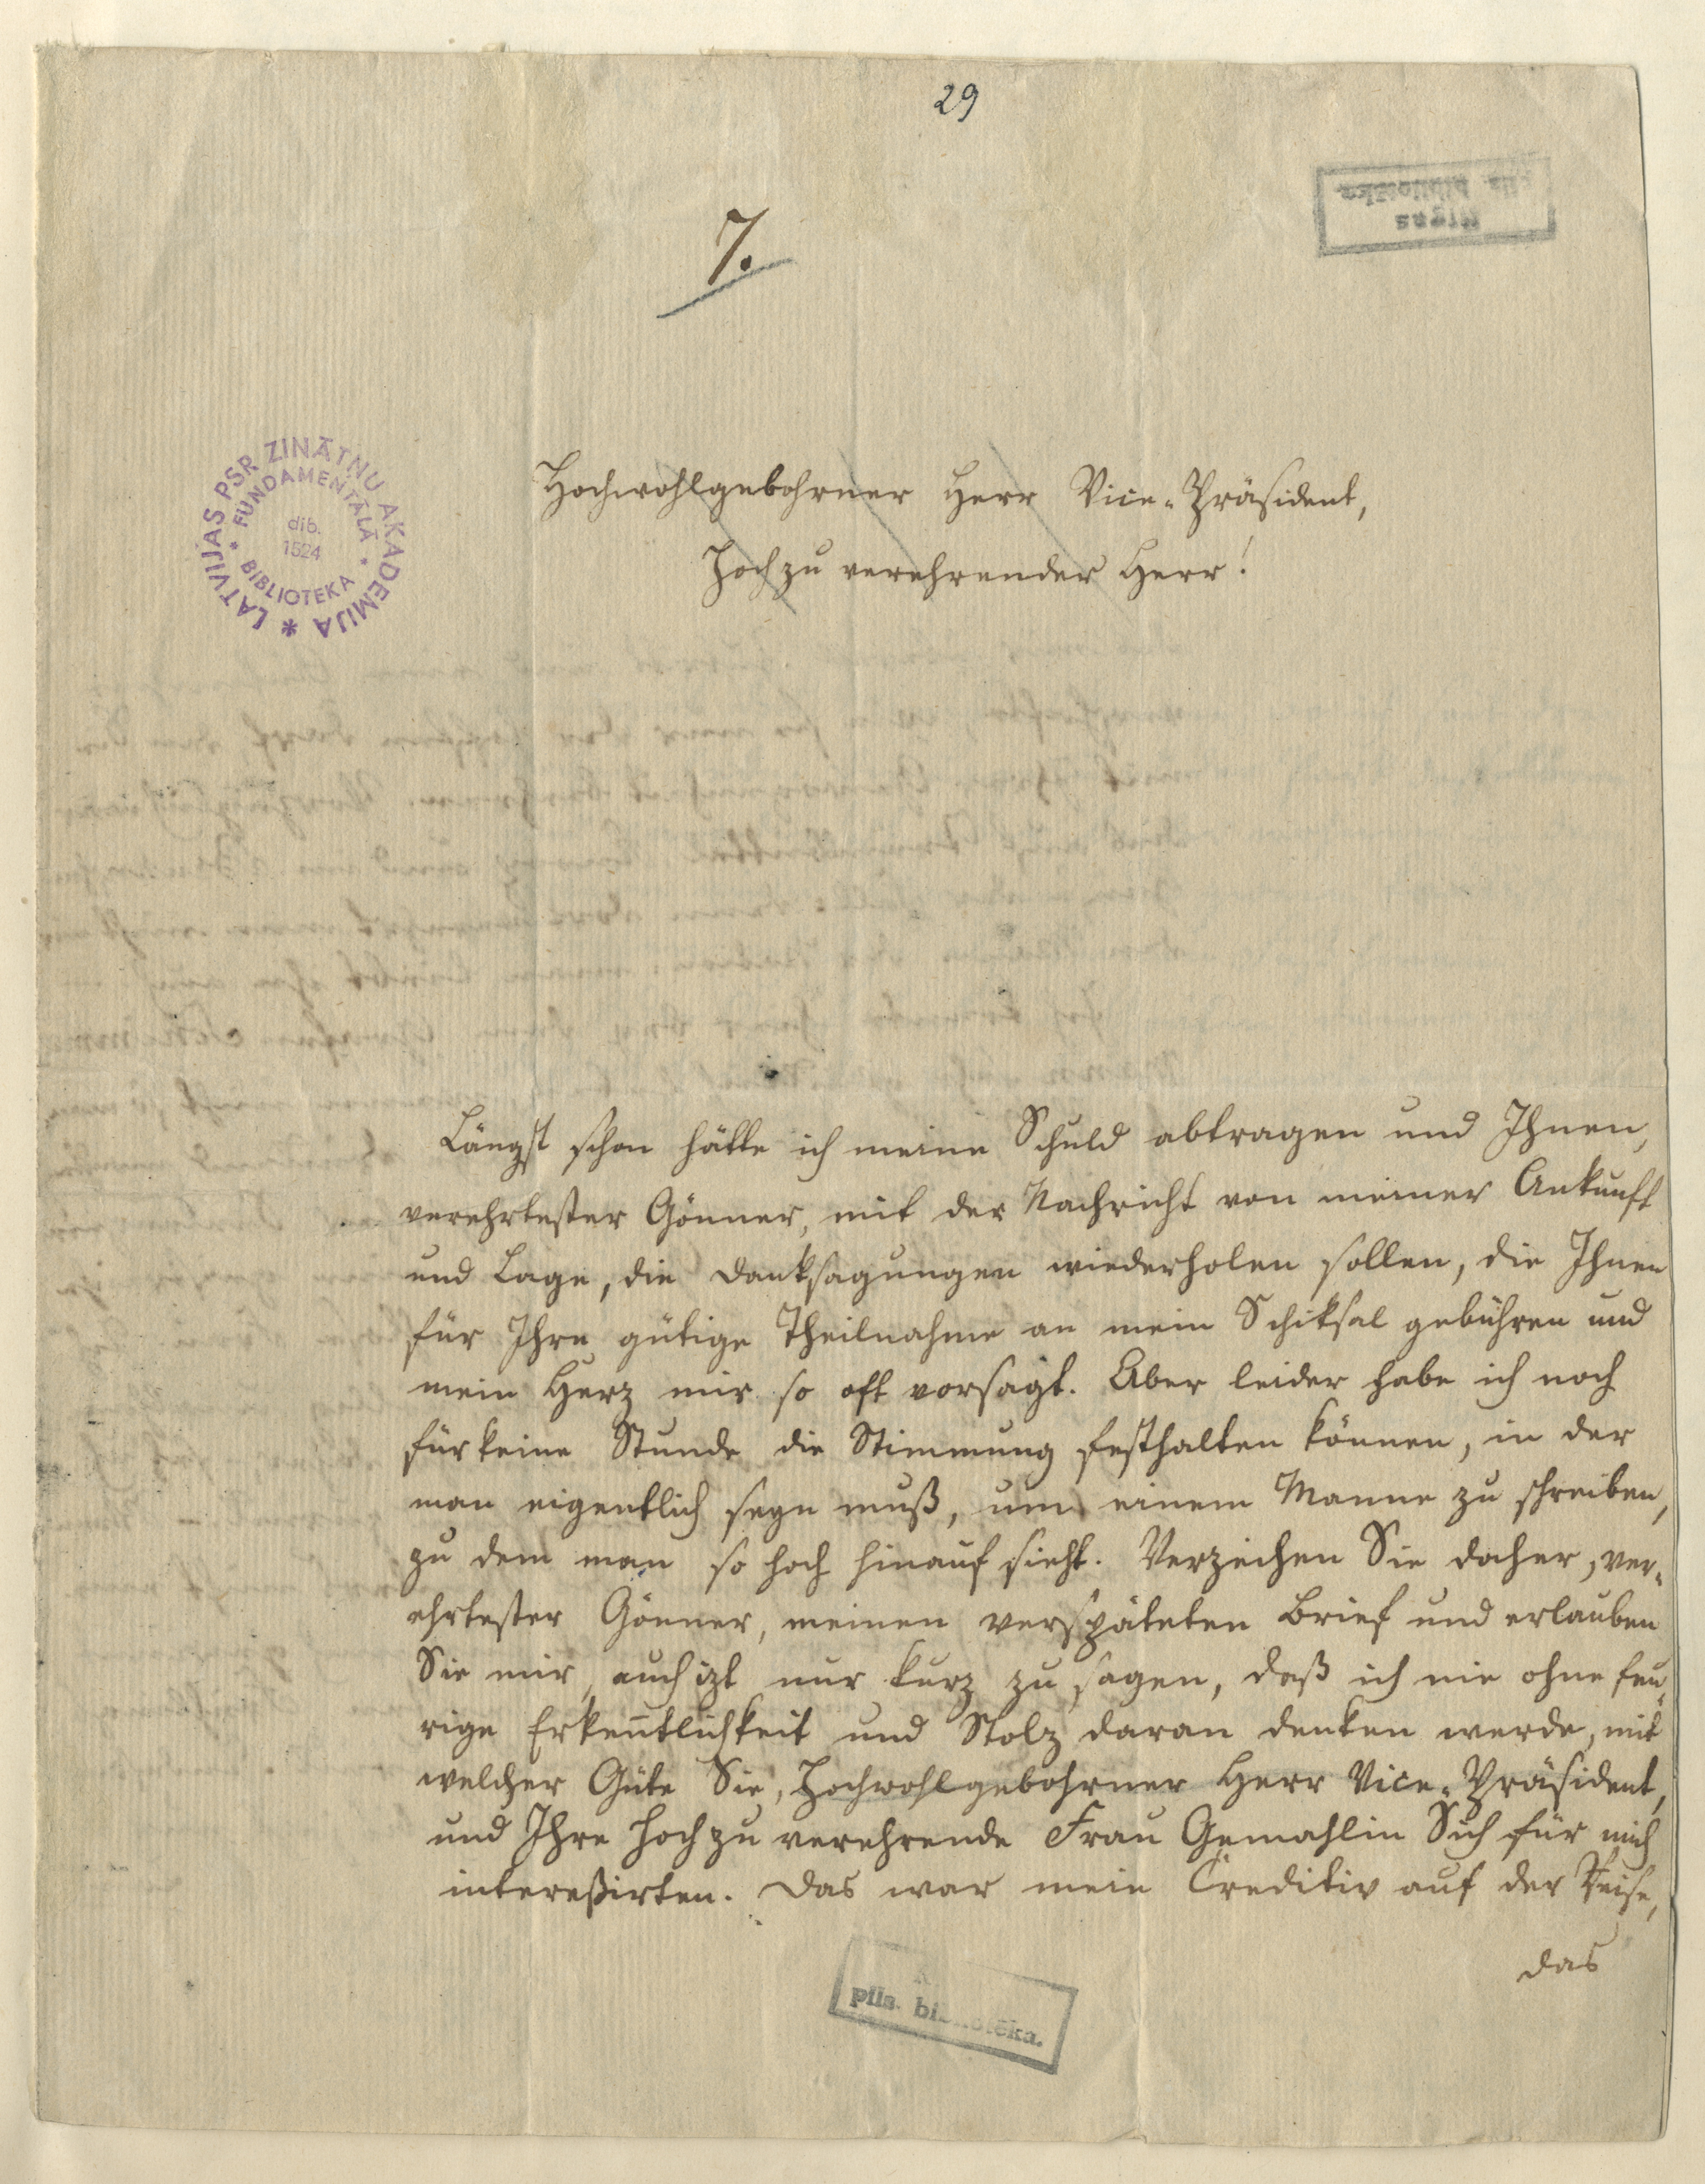 29
7.
Rīgas
pils. bibliotēka.
LATVIJAS PSR ZINĀTŅU AKADEMIJA *
* FUNDAMENTĀLĀ * BIBLIOTEKA
dib.
1524
Hochwohlgebohrner Herr Vice-Präsident,
Hochzu verehrender Herr!
Längst schon hätte ich meine Schuld abtragen und Ihnen,
verehrtester Gönner, mit der Nachricht von meiner Ankunft
und Lage, die Danksagungen wiederholen sollen, die Ihnen
für Ihre gütige Theilnahme an mein Schiksal gebühren und
mein Herz mir so oft vorsagt. Aber leider habe ich noch
für keine Stunde die Stimmung festhalten können, in der
man eigentlich seyn muß, um einem Manne zu schreiben,
zu dem man so hoch hinauf sieht. Verzeihen Sie daher, ver-
ehrtester Gönner, meinen verspäteten Brief und erlauben
Sie mir, auch izt nur kurz zu sagen, daß ich nie ohne feu-
rige Erkeñtlichkeit und Stolz daran denken werde, mit
welcher Güte Sie, Hochwohlgebohrner Herr Vice-Präsident,
und Ihre Hochzu verehrende Frau Gemahlin Sich für mich
intereßirten. Das war mein Creditiv auf der Reise,
das
pils. bibliotēka.